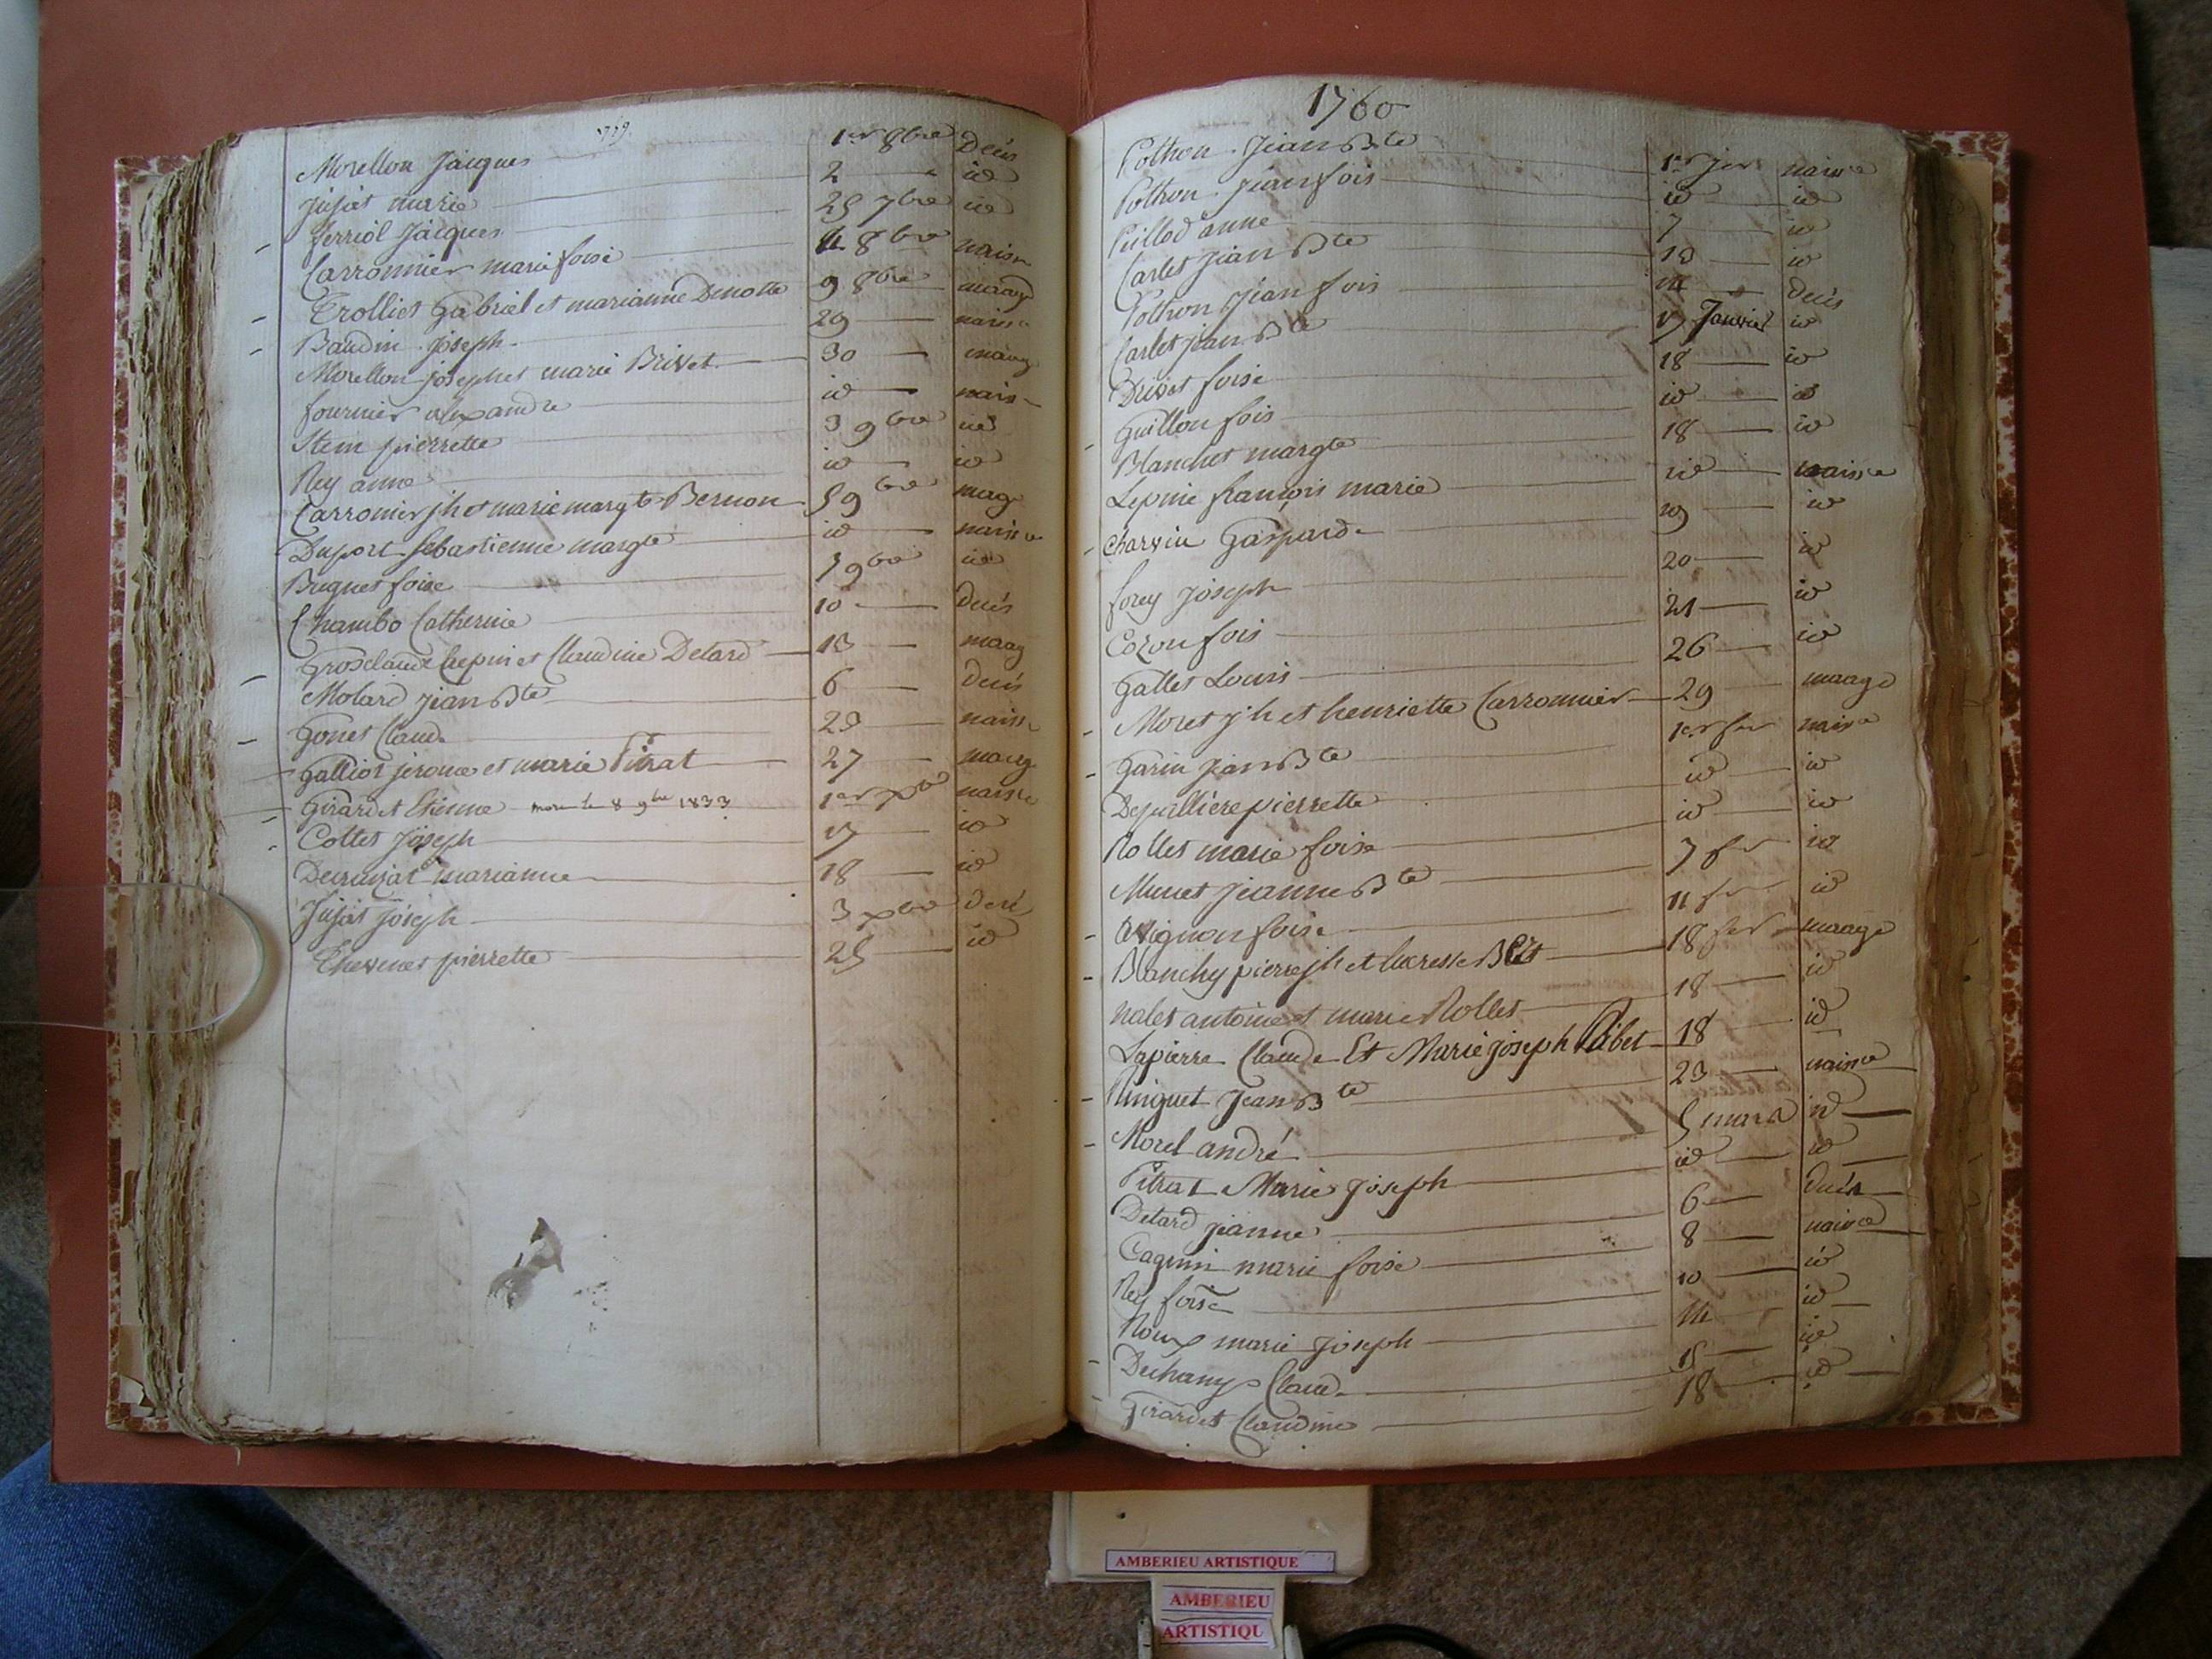 1759
Morellon Jacques 1er 8bre Deces
Jujat marie 2 id
ferriol Jacques 25 7bre id
Carronnier marie foise 4 8bre naisce
Trollier Gabriel et marianne Denotte 9 8bre maage
Baudin joseph 29 naisce
Morellon joseph et marie Brivet 30 maage
fournier alexandre id nais
Stem pierrette 3 9bre id
Rey anne id id
Carronier jh et marie margte Bernon 5 9bre mage
Duport Sebastienne margte id naisce
Bugnet foise 7 9bre id
Chambo Catherine 10 decés
Grosclaude Crepin et Claudine Detard 13 maag
Molard jean Bte 6 decés
Gonet Claude 23 naisse
Galliot jerome et marie Pitrat 27 maag
Girardet Etienne mort le 8 9bre 1833 1er xbre naisce
Cottet Joseph 17 id
marianne 18 id
Jujat joseph 3 xbre decé
Thevenet pierrette 25 id
1760
Pothon Jean Bte 1er jer naisce
Pothon jean fois id id
Peillod anne 7 id
Carlet jean Bte 13 id
Pothon jean fois 14 decés
Carlet jean Bte 17 Janvier id
Brivet foise 18 id
Guillon fois id id
Blanchet margte 18 id
Lepine françois marie id naisce
Charvin Gaspard 19 id
forey joseph 20 id
Cozon fois 21 id
Gallet Louis 26 id
Moret jh et henriette Carronnier 29 maage
Garin jean Bte 1er fer naisce
pierrette id id
Rollet marie foise id id
Munet jeanne Bte 7 fer id
Avignon foise 11 fer id
Blanchy pierre jh et lucresse 18 fer maage
nalet antoine et marie Rollet 18 id
Lapierre Claude Et Marie joseph Pibet 18 id
Ninguet Jean Bte 23 naisce
Morel andré 5 mars id
Pitrat Marie joseph id id
Detard jeanne 6 decés
Cagnin marie foise 8 naisce
Rey foise 10 id
Roux marie joseph 14 id
Claude 15 id
Girardet Claudine 18 id
AMBERIEU ARTISTIQUE
AMBERIEU
ARTISTIQU